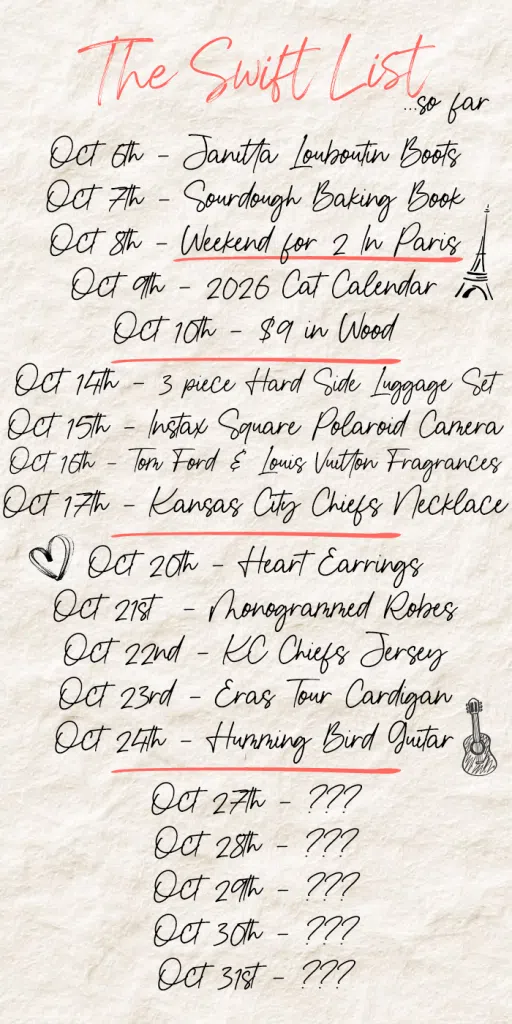 The Swift List
...so far
Oct 6th - Janitta Louboutin Boots
Oct 7th - Sourdough Baking Book
Oct 8th - Weekend for 2 In Paris
Oct 9th - 2026 Cat Calendar
Oct 10th - $9 in Wood
Oct 14th - 3 piece Hard Side Luggage Set
Oct 15th - Instax Square Polaroid Camera
Oct 16th - Tom Ford & Louis Vuitton Fragrances
Oct 17th - Kansas City Chiefs Necklace
Oct 20th - Heart Earrings
Oct 21st - Monogrammed Robes
Oct 22nd - KC Chiefs Jersey
Oct 23rd - Eras Tour Cardigan
Oct 24th - Humming Bird Guitar
Oct 27th - ???
Oct 28th - ???
Oct 29th - ???
Oct 30th - ???
Oct 31st - ???